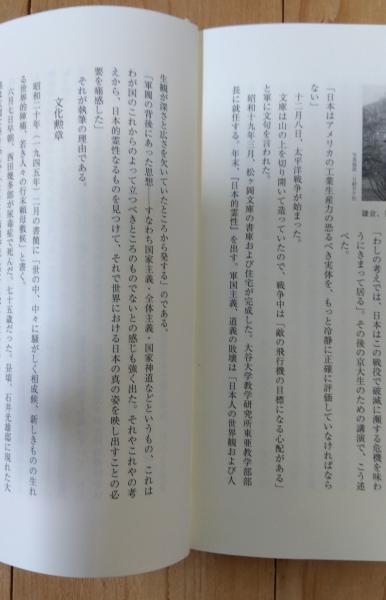 「わしの考えでは、日本はこの戦役で破滅に瀕する危機を味わ
うにきまって居る」。その後の京大生のための講演で、こう述
べた。
「日本はアメリカの工業生産力の恐るべき実体を、もっと冷静に正確に評価していなければなら
ない」
十二月八日、太平洋戦争が始まった。
文庫は山の上を切り開いて造っていたので、戦争中は「敵の飛行機の目標になる心配がある」
と軍に文句を言われた。
昭和十九年三月、松ヶ岡文庫の書庫および住宅が完成した。大谷大学教学研究所東亜教学部部
長に就任する。年末、『日本的霊性』を出す。軍国主義、道義の敗壊は「日本人の世界観および人
生観が深さと広さを欠いていたところから発する」のである。
「軍閥の背後にあった思想――すなわち国家主義・全体主義・国家神道などというもの、これは
わが国のこれからのよって立つべきところのものでないとの感じも強く出た。それやこれやの考
えから、日本的霊性なるものを見つけて、それで世界における日本の真の姿を映し出すことの必
要を痛感した」
それが執筆の理由である。
文化勲章
昭和二十年（一九四五年）二月の書簡に「世の中、中々に騒がしく相成候、新しきもの生れ
る世界的陣痛、若き人々の行末頼母敷候」と書く。
六月七日早朝、西田幾多郎が尿毒症で死んだ。七十五歳だった。昼頃、石井光雄邸に現れた大
鎌倉、